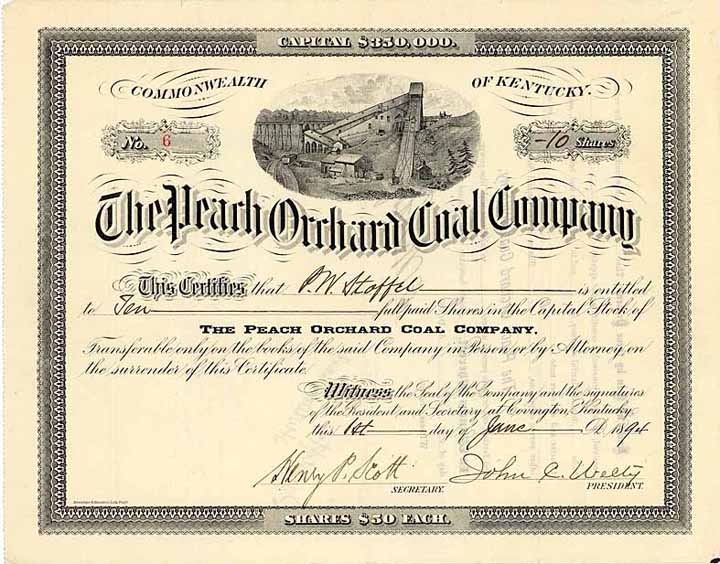 CAPITAL $350,000.
COMMONWEALTH OF KENTUCKY.
No. 6
-10 Shares
The Peach Orchard Coal Company
This Certifies that P. W. Stoffel is entitled
to Ten full paid Shares in the Capital Stock of
THE PEACH ORCHARD COAL COMPANY.
Transferable only on the books of the said Company in Person or by Attorney on
the surrender of this Certificate
Witness the Seal of the Company and the signatures
of the President and Secretary at Covington, Kentucky,
this 1st day of June A.D. 1894
Henry P. Scott John C. Welty
SECRETARY. PRESIDENT.
SHARES $50 EACH.